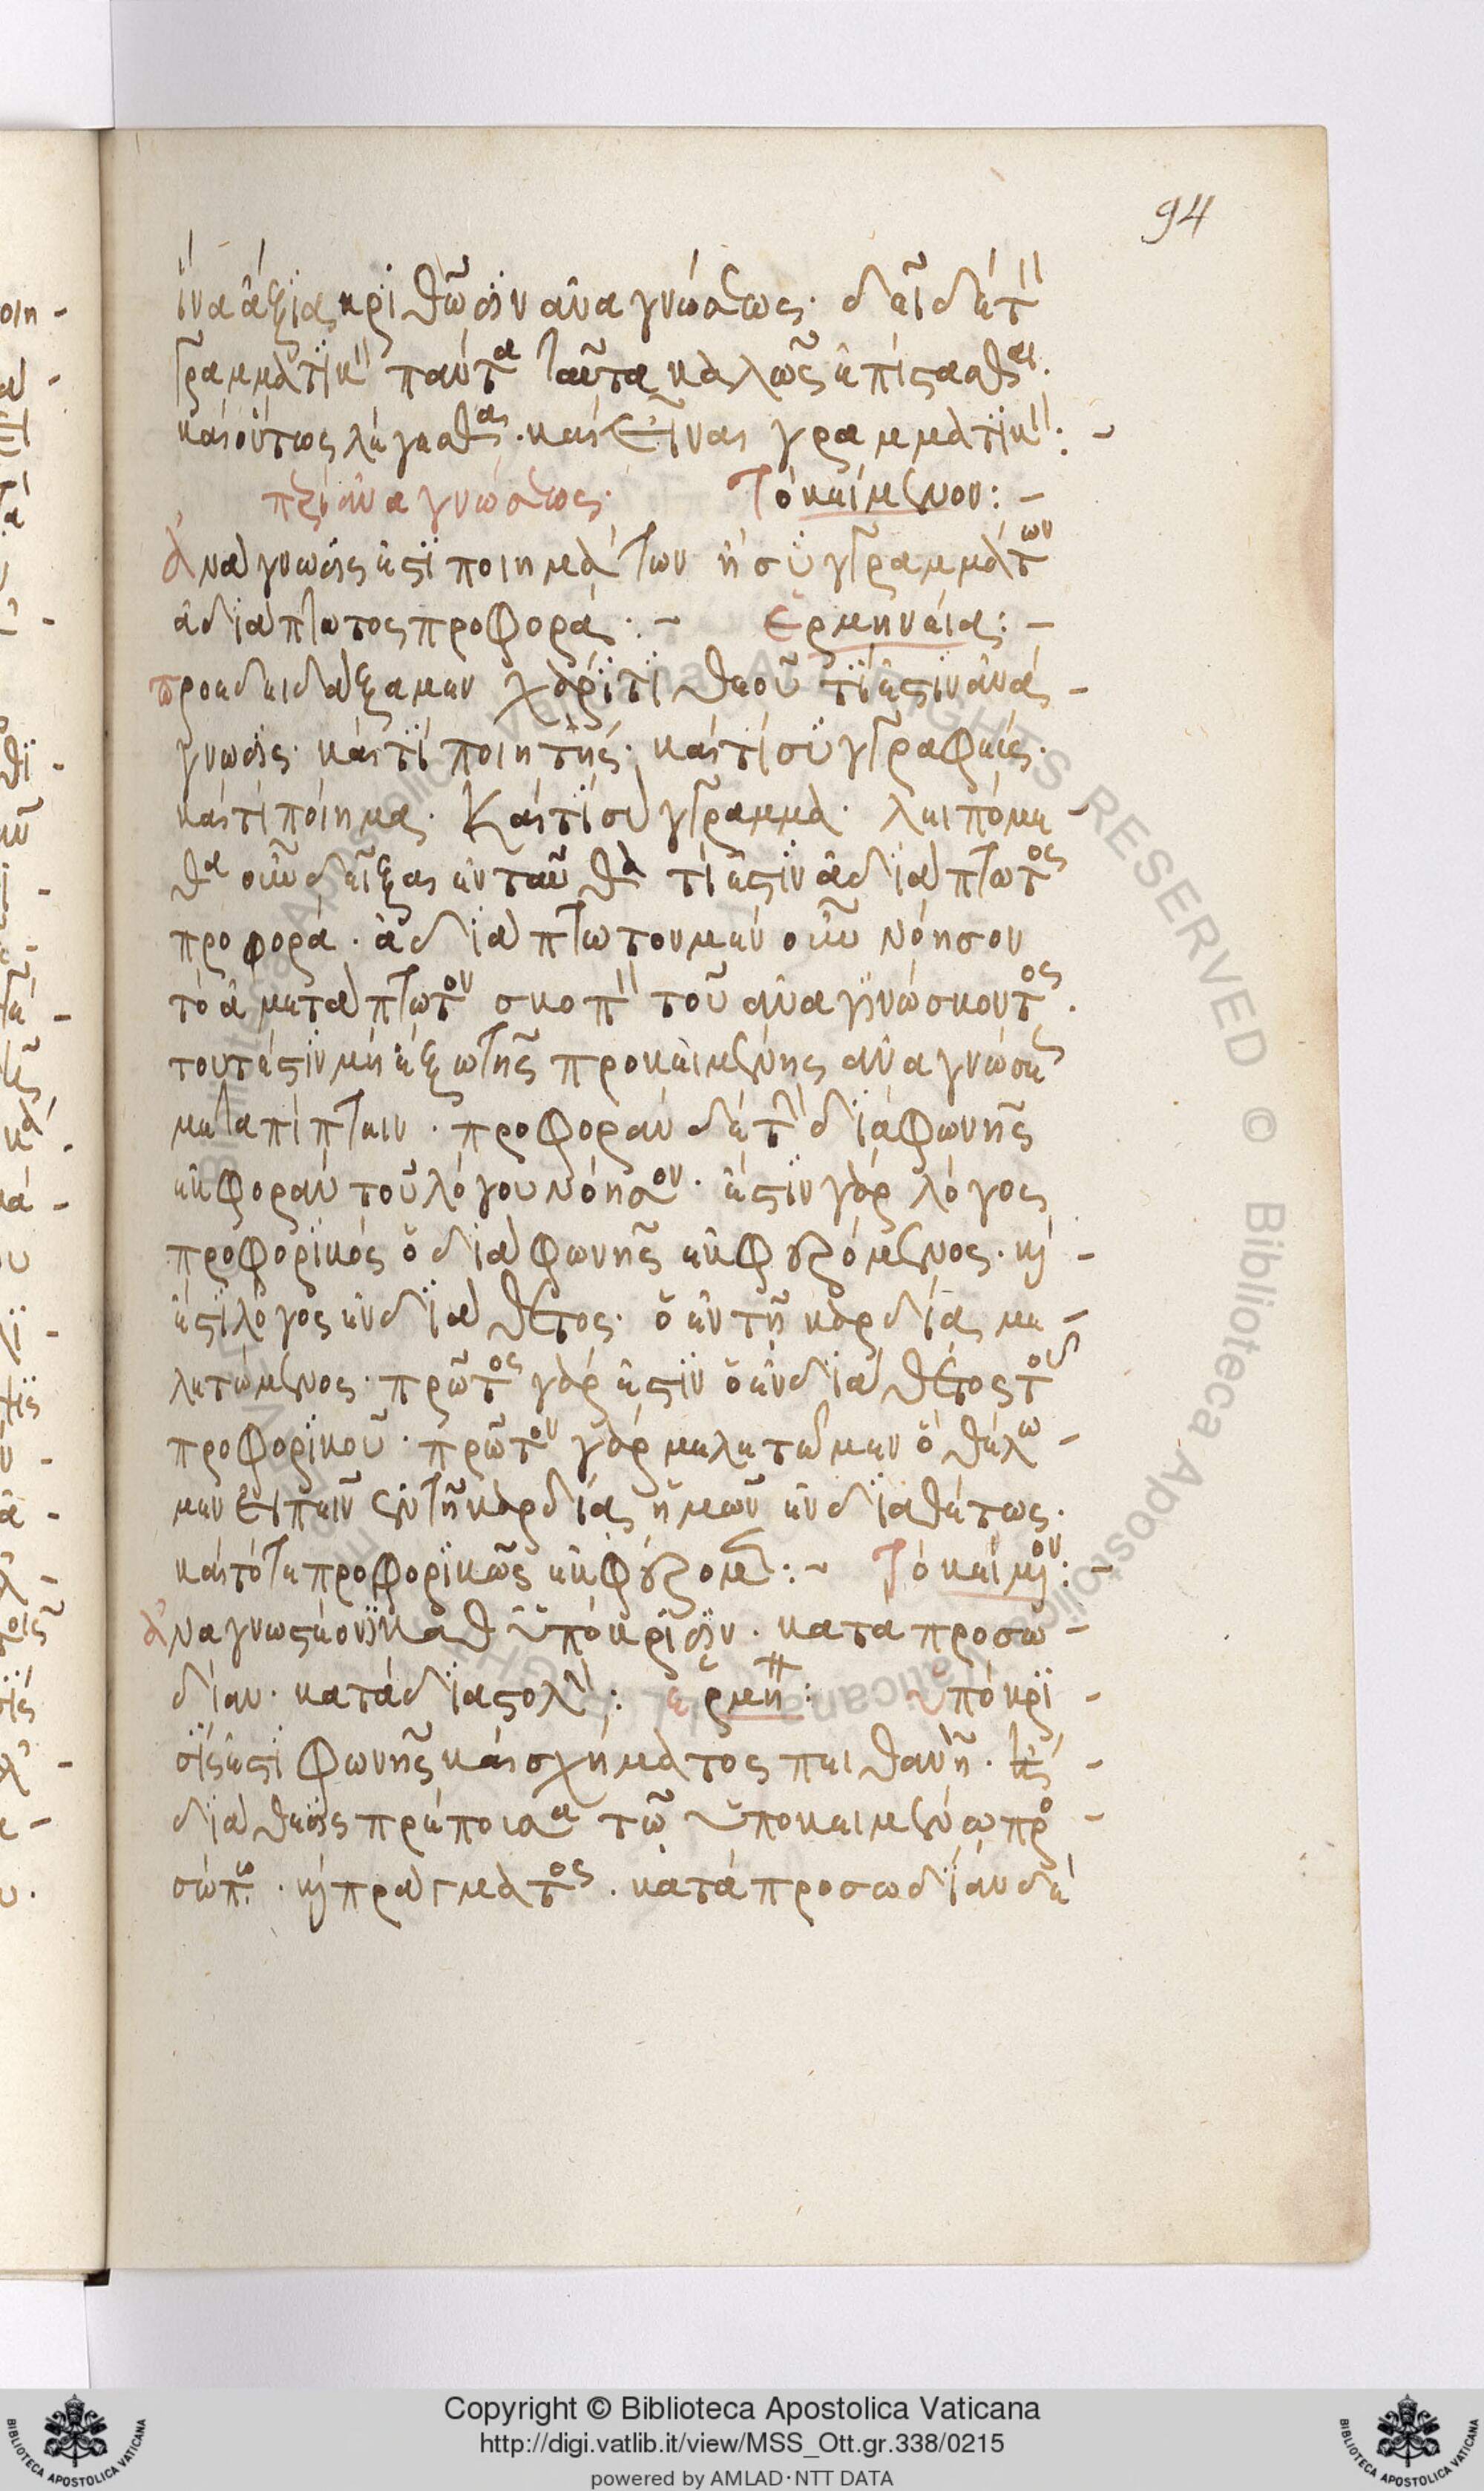 94
ἵνα ἄξια κριθῶσιν ἀναγνώσεως· δεῖ δὲ τὸν
γραμματικὸν πάντα ταῦτα καλῶς ἐπίστασθαι·
καὶ οὕτως λέγεσθαι· καὶ εἶναι γραμματικόν: -
περὶ ἀναγνώσεως· Τὸ κείμενον: -
Ἀνάγνωσίς ἐστι ποιημάτων ἢ συγγραμμάτων
ἀδιάπτωτος προφορά: - Ἑρμηνεία: -
προεδειδάξαμεν χάριτι θεοῦ τί ἐστιν ἀνά -
γνωσις· καὶ τί ποιητής· καὶ τί συγγραφεύς·
καὶ τί ποίημα· Καὶ τί σύγγραμμα· λειπόμε -
θα οὖν δεῖξαι ἐνταῦθα τί ἐστιν ἀδιάπτωτος
προφορά· ἀδιάπτωτον μὲν οὖν νόησον
τὸ ἀμετάπτωτον σκοπὸν τοῦ ἀναγινώσκοντος·
τουτέστιν μὴ ἔξω τῆς προκειμένης ἀναγνώσεως
μεταπίπτειν· προφορὰν δὲ τὴν διὰ φωνῆς
ἐκφορὰν τοῦ λόγου νόησον· ἔστιν γὰρ λόγος
προφορικός ὁ διὰ φωνῆς ἐκφερόμενος· καὶ -
ἔστι λόγος ἐνδιάθετος· ὁ ἐν τῇ καρδίᾳ με -
λετώμενος· πρῶτος γάρ ἐστιν ὁ ἐνδιάθετος τοῦ
προφορικοῦ· πρῶτον γὰρ μελετῶμεν ὃ θέλω -
μεν εἰπεῖν ἐν τῇ καρδίᾳ ἡμῶν ἐνδιαθέτως·
καὶ τότε προφορικῶς ἐκφέρομεν: - Τὸ κείμενον: -
Ἀναγνωστέον καθ ὑπόκρισιν· κατὰ προσῳ -
δίαν· κατὰ διαστολήν: ἑρμη: ὑπόκρι -
σίς ἐστι φωνῆς καὶ σχήματος πειθανὴ· καὶ -
διάθεσις πρέπουσα τῷ ὑποκειμένῳ προ -
σώπῳ· καὶ πράγματος· κατὰ προσῳδίαν δὲ
Copyright © Biblioteca Apostolica Vaticana
http://digi.vatlib.it/view/MSS_Ott.gr.338/0215
powered by AMLAD·NTT DATA